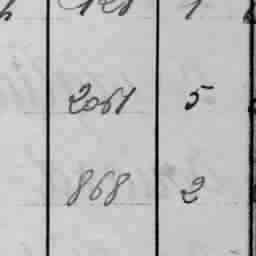 2061 5
868 2